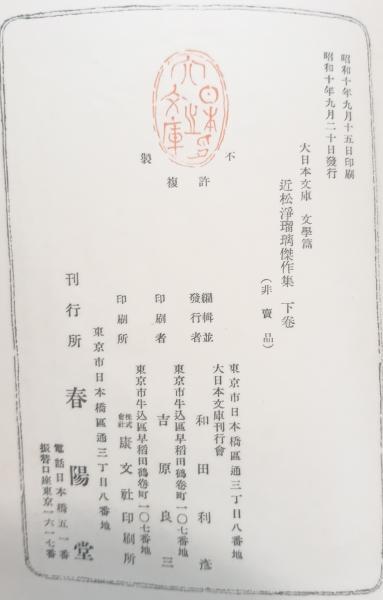 昭和十年九月十五日印刷
昭和十年九月二十日發行
大日本文庫 文學篇
近松淨瑠璃傑作集 下卷
(非賣品)
不許複製
東京市日本橋區通三丁目八番地
大日本文庫刊行會
編輯並發行者 和田利彦
東京市牛込區早稻田鶴卷町一〇七番地
印刷者 吉原良三
東京市牛込區早稻田鶴卷町一〇七番地
印刷所 株式會社 康文社印刷所
東京市日本橋區通三丁目八番地
刊行所 春陽堂
電話日本橋五一番
振替口座東京一六一七番